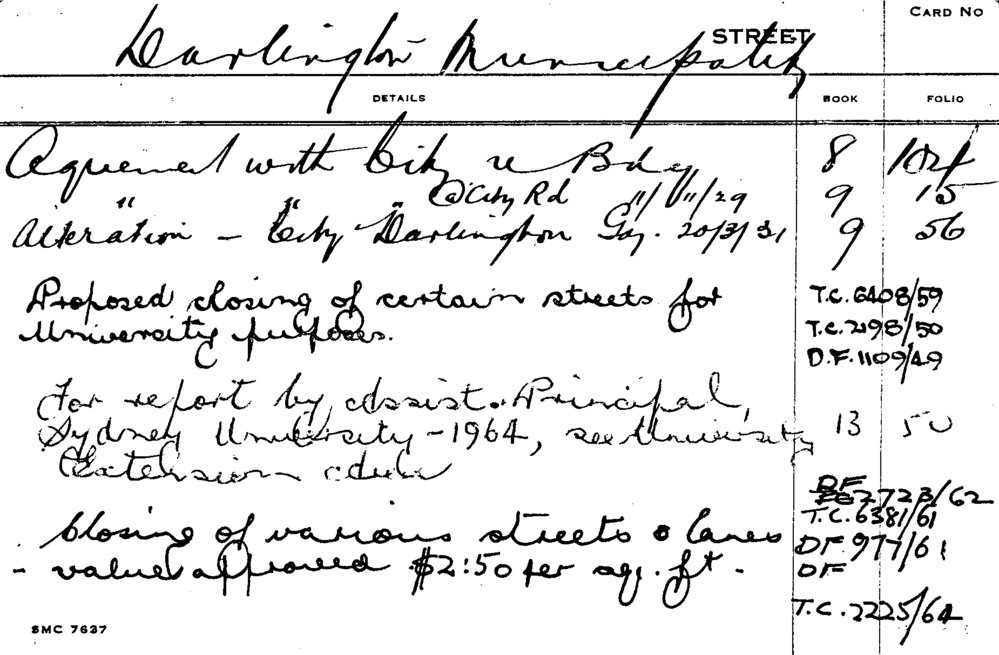 CARD NO
STREET
Darlington Municipality
DETAILS BOOK FOLIO
Agreement with City re Bdy 8 104
" " " @ City Rd 11/11/29 9 15
Alteration - City Darlington Gaz. 20/3/31 9 56
Proposed closing of certain streets for T.C. 6408/59
University purposes. T.C. 2198/50
D.F. 1109/49
For report by Assist. Principal,
Sydney University - 1964, see University 13 50
Extension
DF 2723/62
T.C. 6381/61
Closing of various streets & lanes DF 977/61
- values approved $2:50 per sq. ft. - DF
T.C. 2225/64
SMC 7637